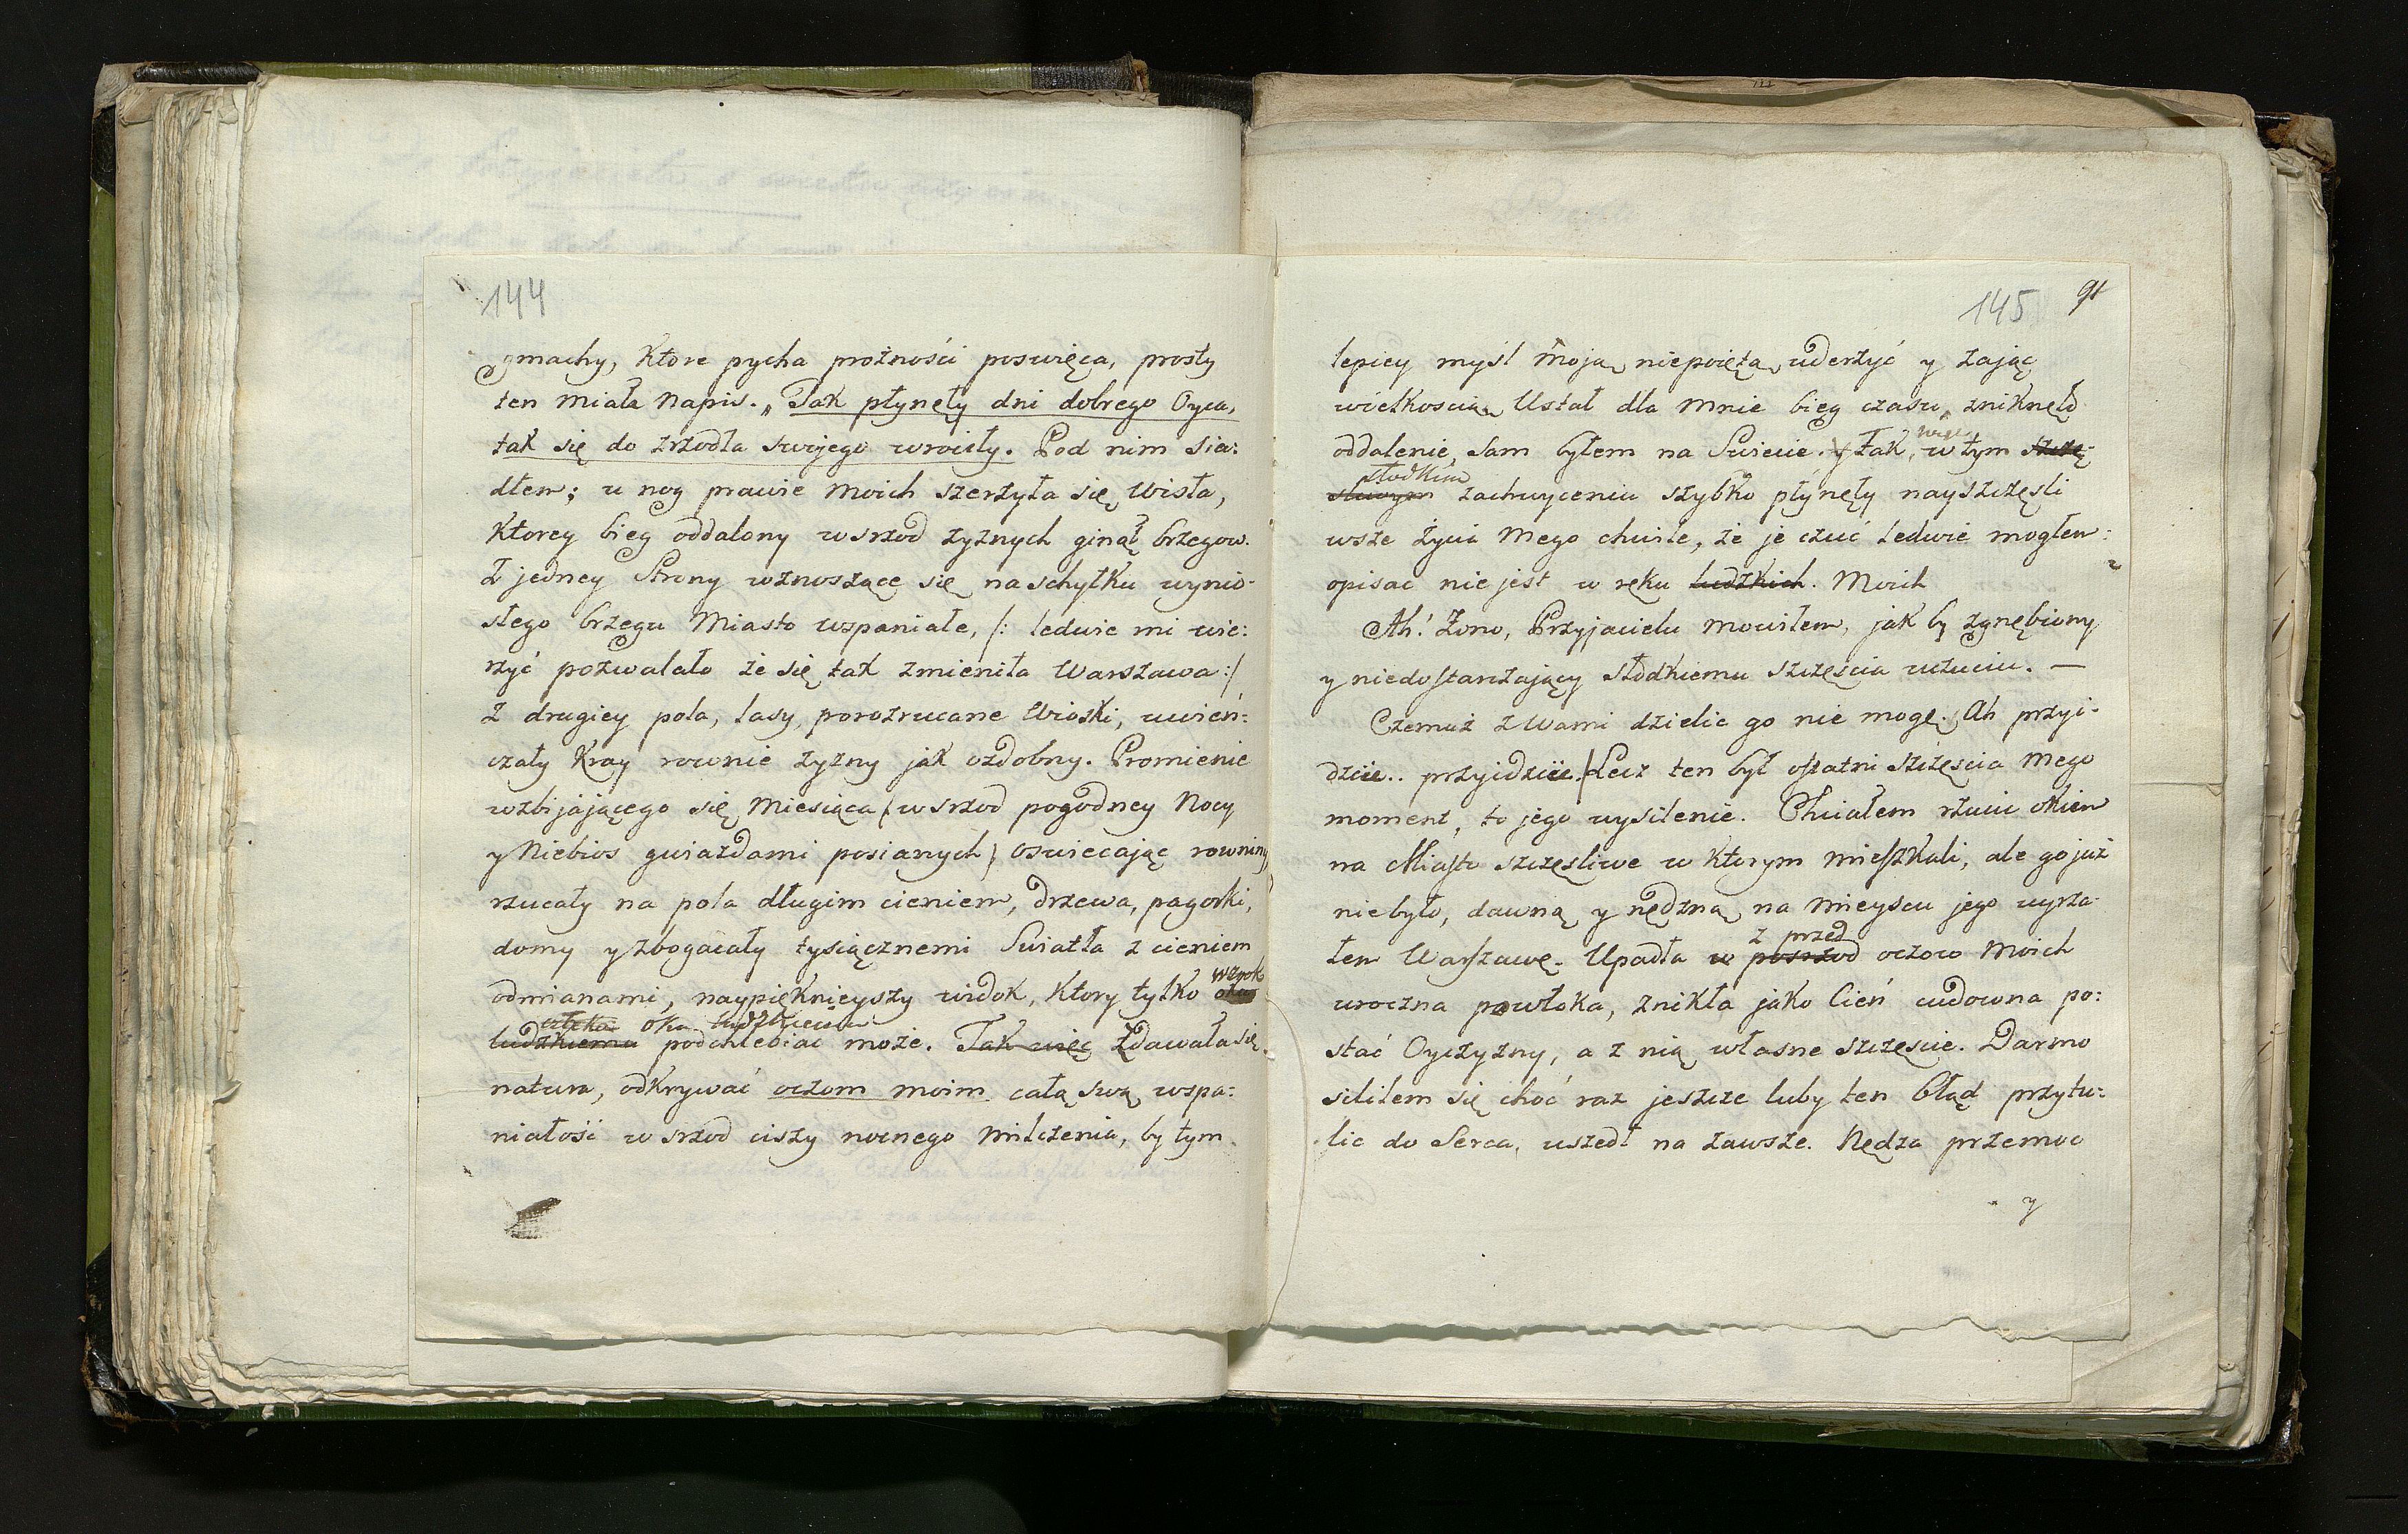 144
gmachy, Ktore pycha prożności poswięca, prosty
ten miała Napis. „Tak płynęły dni dobrego Oyca,
tak się do zrzodła swojego wrociły. Pod nim sia:
dłem; u nog prawie moich szerzyła się Wisła,
Ktorey bieg oddalony wsrzod zyznych ginął brzegow.
Z jedney Strony wznoszące się na schyłku wynio-
słego brzegu Miasto wspaniałe, /: ledwie mi wie:
rzyć pozwalało że się tak zmieniła Warszawa :/
Z drugiey pola, lasy, porozrucane Wioski, uwień:
czały Kray rownie zyzny jak ozdobny. Promienie
wzbijającego się Miesiąca / w srzod pogodney Nocy
y Niebios gwiazdami posianych / oswiecając rowniny
rzucały na pola długim cieniem, drzewa, pagorki,
domy y zbogacały tysiącznemi Swiatła z cieniem
odmianami, naypięknieyszy widok, Ktory tylko wzrok
człeka oka ludzkiemu
ludzkiemu podchlebiać może. Tak więc Zdawała się
natura, odkrywać oczom moim całą swą wspa:
niałość w srzod ciszy nocnego Milczenia, by tym
145 91
lepiey myśl moją niepoiętą uderzyć y zająć
wielkoscią. Ustał dla mnie bieg czasu, zniknęło
oddalenie, Sam byłem na Swiecie. y tak, więc w tym szczę-
słodkim
sliwym zachwyceniu szybko płynęły nayszczęsli
wsze życia Mego chwile, że je czuć ledwie mogłem:
opisac nie jest w ręku ludzkich. Moich
Ah! Żono, Przyjacielu mowiłem, jak by zgnębiony
y niedostarczający słodkiemu szczęścia uczuciu. —
Czemuż z Wami dzielic go nie mogę. Ah przyi-
dzcie.. przyidzcie./Lecz ten był ostatni szczęscia Mego
moment, to jego wysilenie. Chciałem rzucic okiem
na Miasto szczęsliwe w Ktorym mieszkali, ale go już
niebyło, dawną y nędzną na mieyscu jego uyrza-
z przed
łem Warszawę. Upadła w posrzod oczow Moich
uroczna powłoka, znikła jako Cień cudowna po:
stać Oyczyzny, a z nią własne szczęscie. Darmo
siliłem się choć raz jeszcze luby ten błąd przytu:
lic do Serca, uszedł na zawsze. Nędza przemoc
y